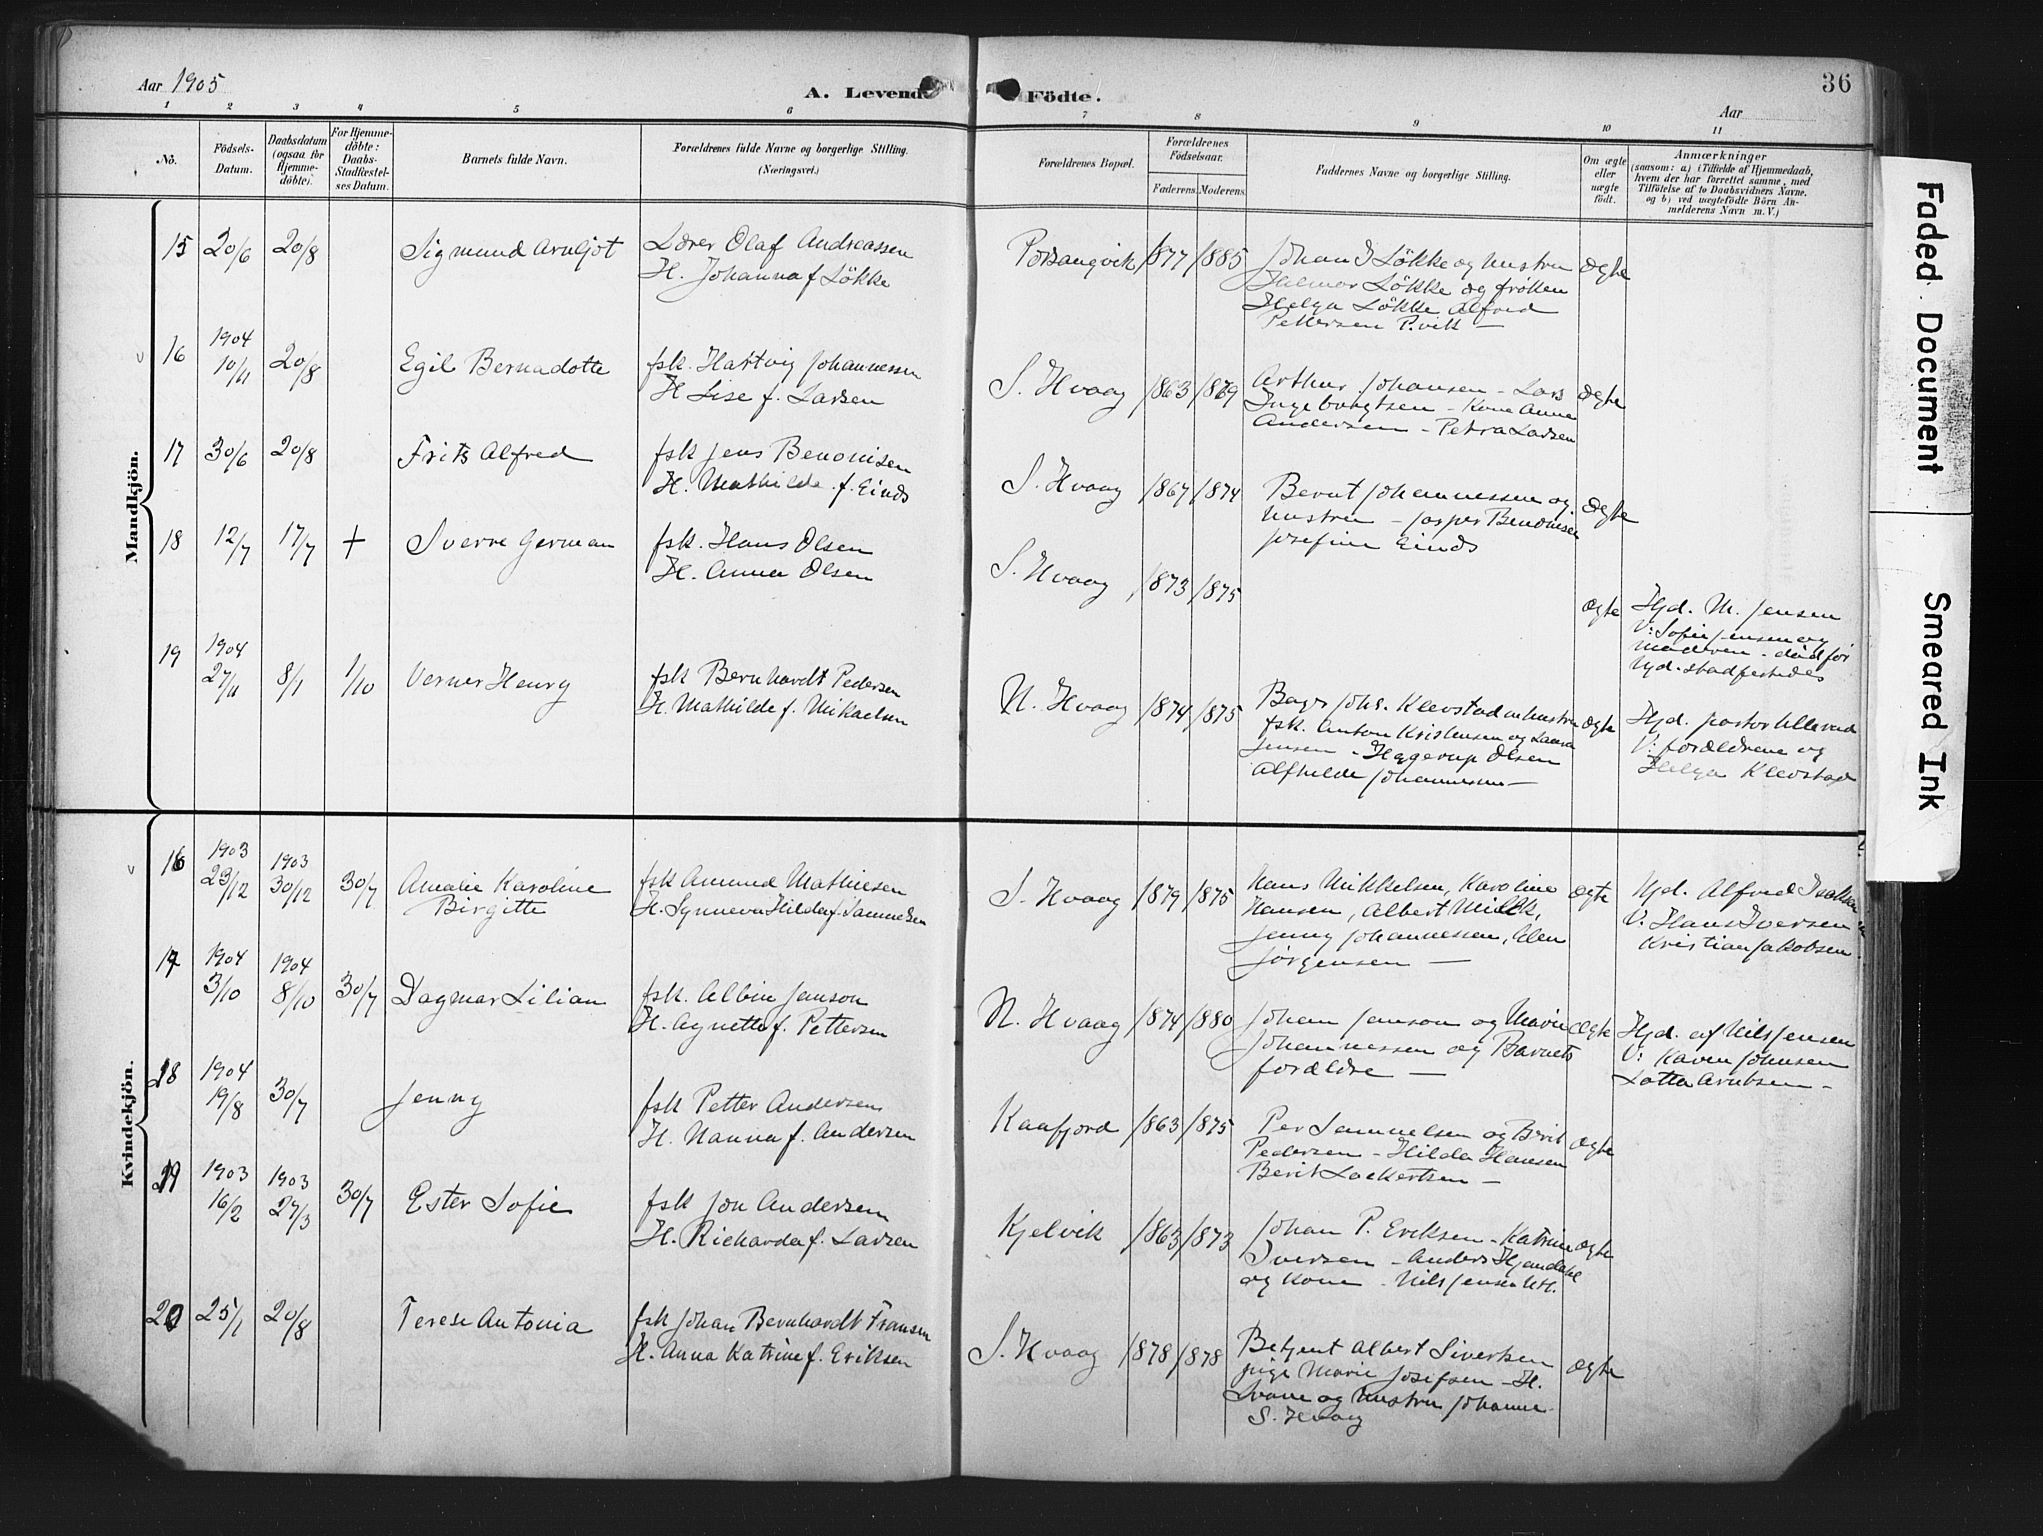 Aar 1905
A. Levende Födte.
36
Aar
1 2 3 4 5 6 7 8 9 10 11
No.
Födsels-Datum.
Daabsdatum (ogsaa for Hjemme-döbte).
For Hjemme-döbte: Daabs-Stadfæstel-ses Datum.
Barnets fulde Navn.
Forældrenes fulde Navne og borgerlige Stilling.
(Næringsvei.)
Forældrenes Bopæl.
Forældrenes Födselsaar.
Faderens. Moderens.
Faddernes Navne og borgerlige Stilling.
Om ægte eller uægte födt.
Anmærkninger
(saasom: a) i Tilfælde af Hjemmedaab, hvem der har forrettet samme, med Tilföielse af to Daabsvidners Navne. og b) ved uægtefödte Börn An-melderens Navn m. V.)
Mandkjön.
15 20/6 20/8 Sigmund Arnljot
Lærer Olaf Andreassen
H. Johanna f Lökke
Porsangvik 1877 1885
Johan I Lökke og hustru
Hjalmar Lökke og fröken
Helga Lökke Alfred
Pettersen P.vik —
ægte
16 1904 10/11 20/8 Egil Bernadotte
fsk. Hartvig Johannessen
H Lise f. Larsen
S. Hvaag 1863 1869
Arthur Johansen - Lars
Ingebrigtsen - Kone Anna
Andersen - Petra Larsen
ægte
17 30/6 20/8 Frits Alfred
fsk Jens Benonisen
H. Mathilde f. Einds
S. Hvaag 1867 1874
Bernt Johannessen og
hustru - Jasper Benonisen
Josefine Einds
ægte
18 12/7 17/7 + Sverre German
fsk. Hans Olsen
H. Anna Olsen
S. Hvaag 1873 1875
ægte
Hjd. M. Jensen
V: Sofie Jensen og
moderen - död för
hjd. stadfestedes
19 1904 27/11 8/1 1/10 Verner Henry
fsk Bernhardt Pedersen
H. Mathilde f. Mikaelsen
N. Hvaag 1874 1875
Bager Johs. Klevstad og hustru
fsk. Anton Kristensen og Laura
Jensen - Heggerup Olsen
Alfhilde Johannesen —
ægte
Hjd. pastor Ullerud
V: forældrene og
Helga Klevstad
Kvindekjön.
16 1903 23/12 1903 30/12 30/7 Amalie Karoline
Birgitte
fsk Amund Mathiesen
H. Synneva Hilda f. Samuelsen
S. Hvaag 1879 1875
Hans Mikkelsen, Karoline
Hansen, Albert Milch,
Jenny Johannessen, Elen
Jörgensen —
ægte
Hjd. Alfred Isaksen
V. Hans Iversen
Kristian Jakobsen
17 1904 3/10 1904 8/10 30/7 Dagmar Lilian
fsk. Albin Janson
H. Agnette f. Pettersen
N. Hvaag 1874 1880
Johan Janson og Marie
Johannessen og Barnets
forældre —
ægte
Hjd. af Nils Jensen
V: Karen Johnsen
Lotta Arntsen -
18 1904 19/8 30/7 Jenny
fsk Petter Andersen
H. Nanna f. Andersen
Kaafjord 1863 1875
Per Samuelsen og Berit
Pedersen - Hilda Hansen
Berit Lockertsen —
ægte
19 1903 16/2 1903 27/3 30/7 Ester Sofie
fsk Jon Andersen
H. Richarda f. Larsen
Kjelvik 1863 1873
Johan P. Eriksen - Katrine
Iversen - Anders Hjemdahl
og kone - Nils Jensen
ægte
20 25/1 20/8 Terese Antonia
fsk Johan Bernhardt Fransen
H. Anna Katrine f. Eriksen
S. Hvaag 1878 1878
Betjent Albert Sivertsen
pige Marie Josifsen - H.
Svane og hustru Johanne
S. Hvaag
ægte
Faded Document
Smeared Ink